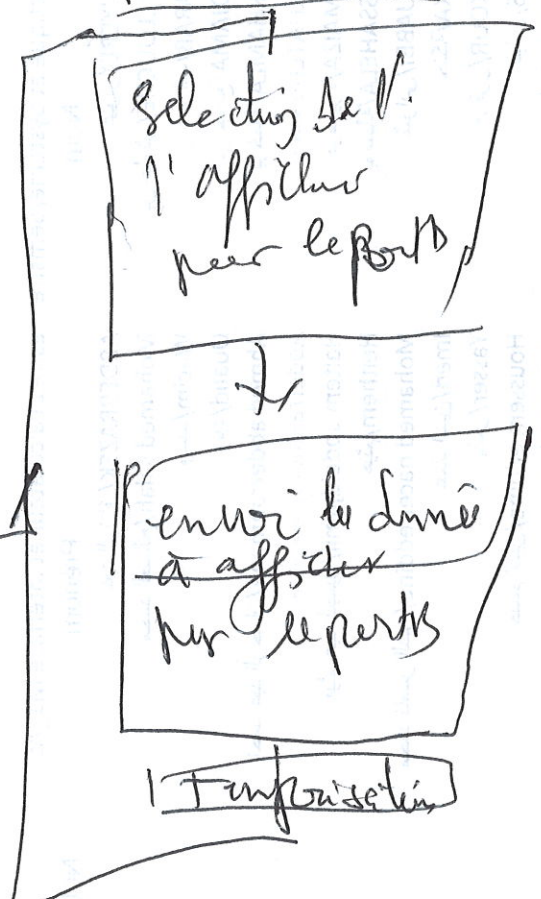 Selection de l'
l'afficheur
par le port D
envoi les donné
à afficher
par le port B
Temporisation